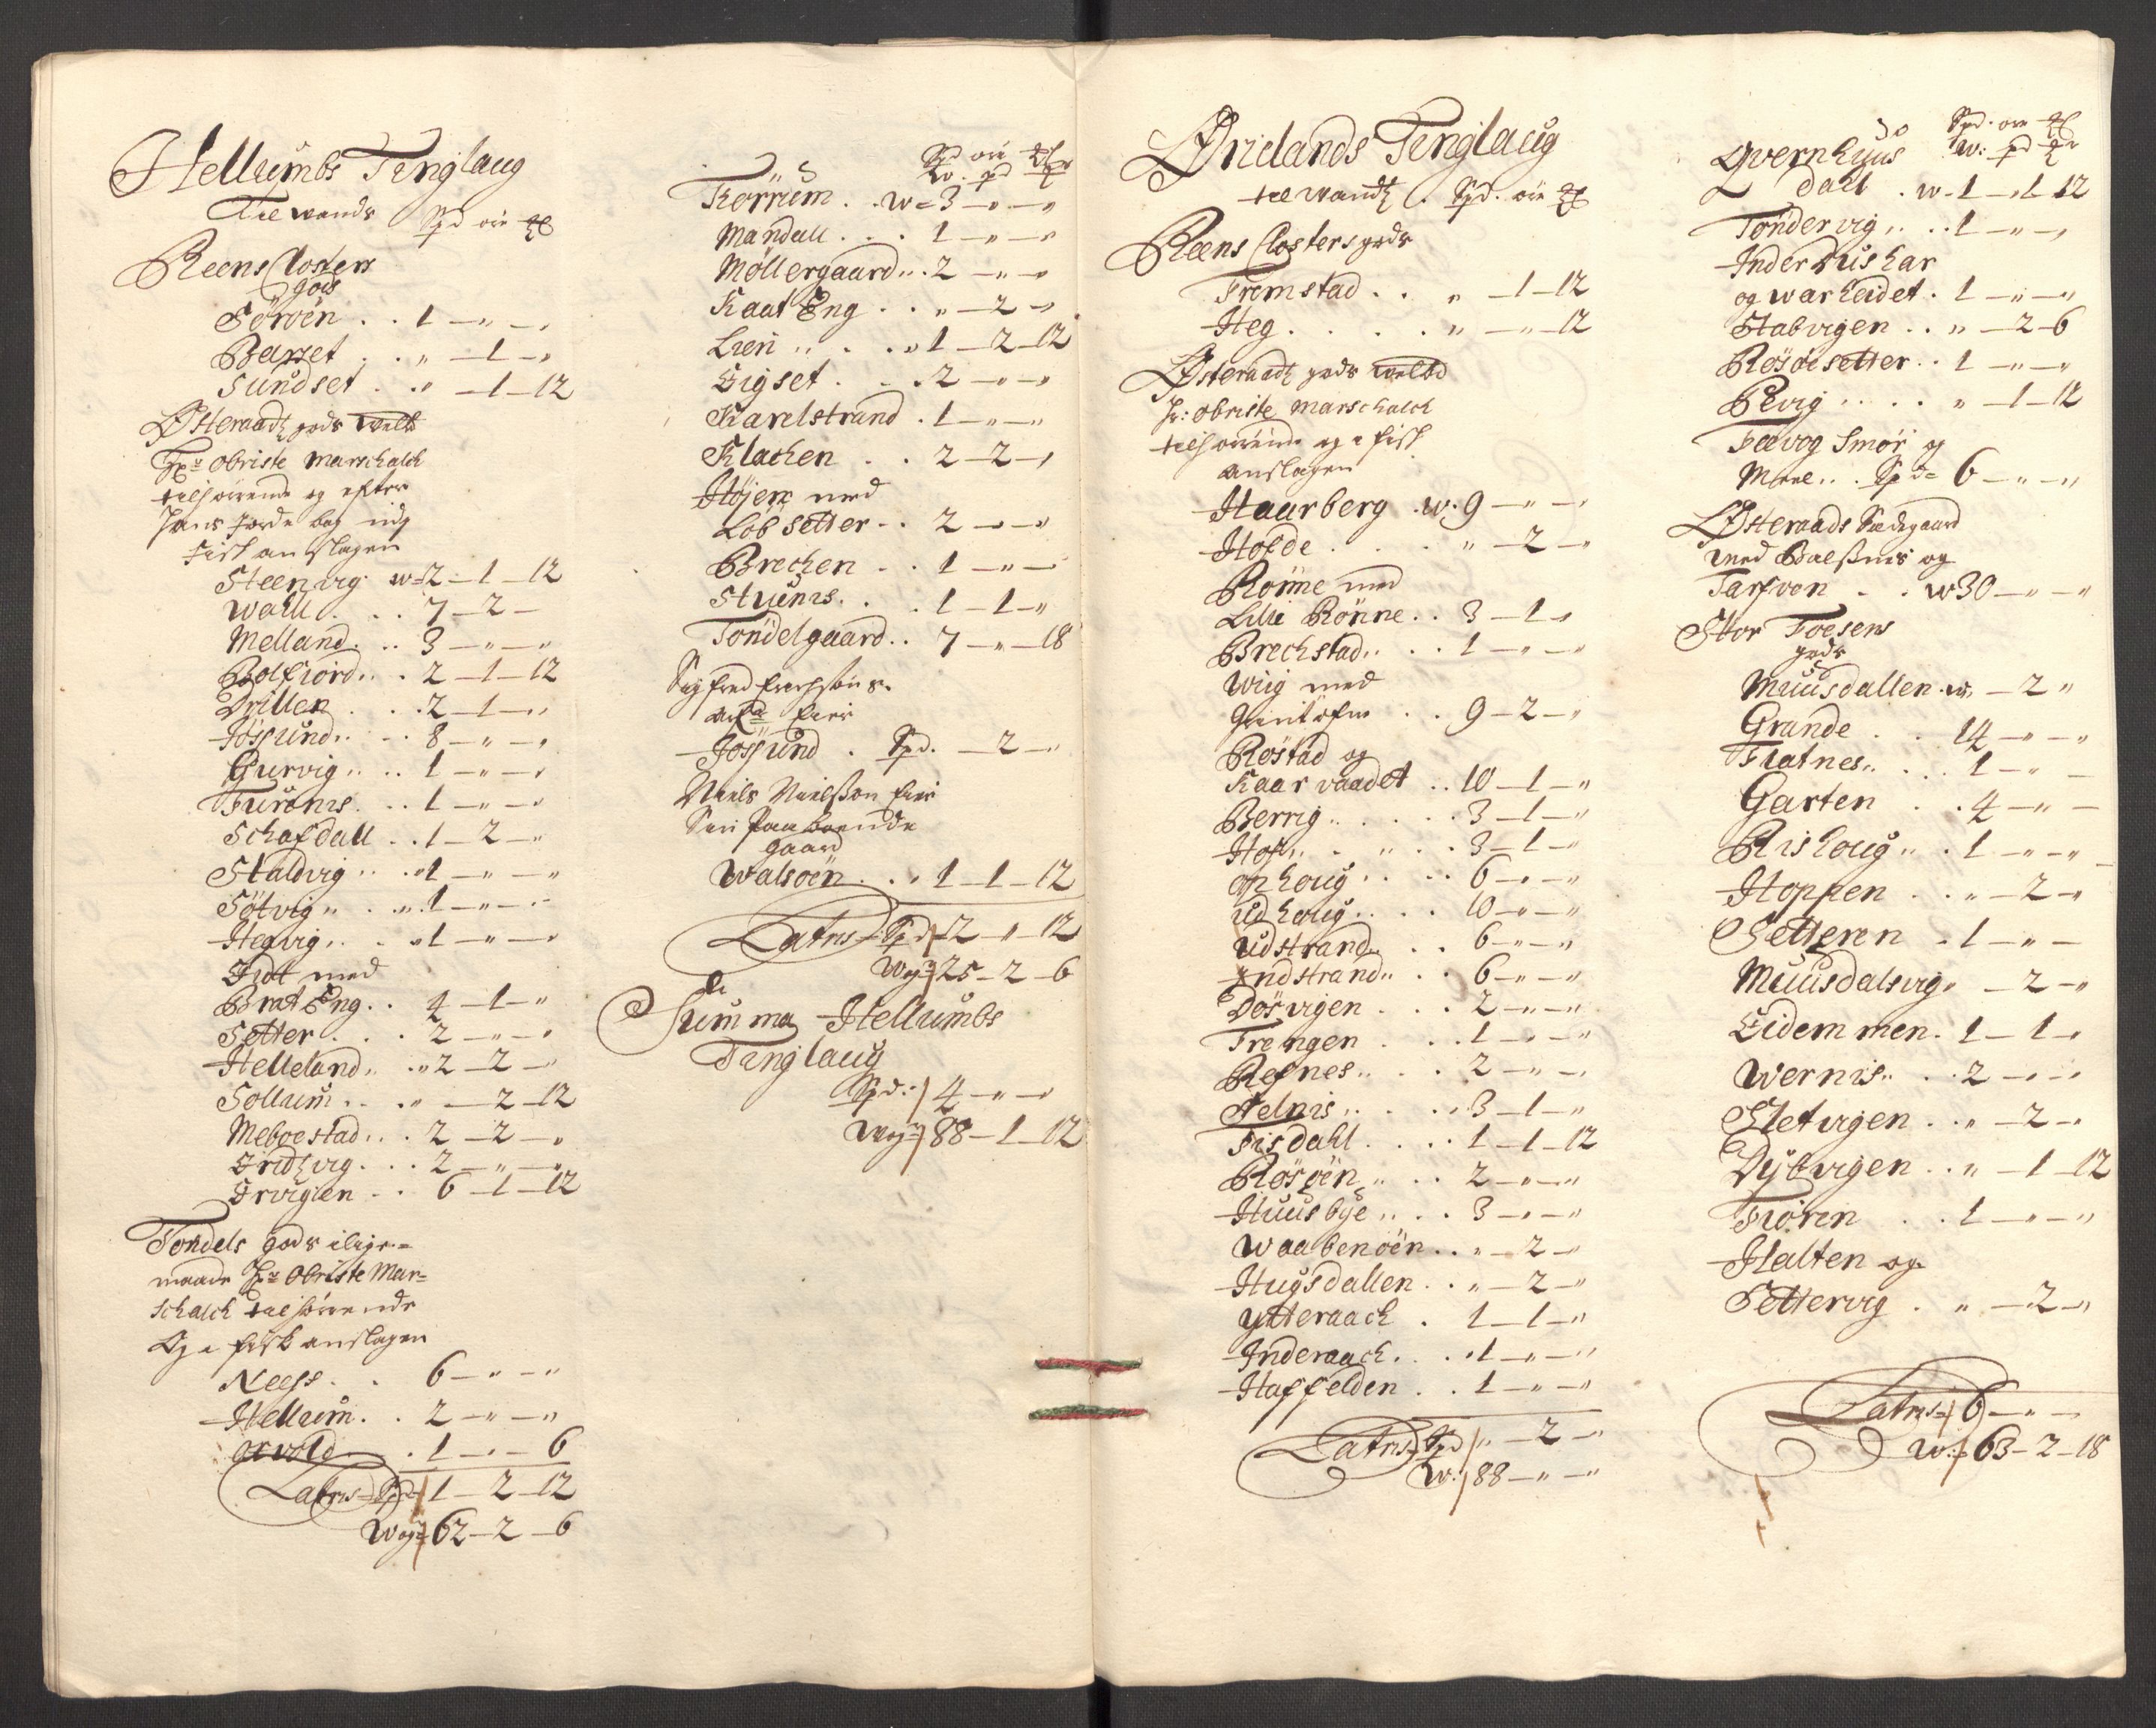 Hellumbs Tinglaug
Til wands Spd øre
Reens Closters
gods
Söröen . . 1 — " — "
Basset . . " — 1 — "
Sundset . . " — 1 — 12
Østeraadtz gods
Hr Obriste Marschalch
tilhørende og efter
hans Jorde bog
Fisk anslagen
Steenvig w 2 — 1 — 12
Wahl . . . 7 — 2 —
Melland . . 3 — " — "
Bolfiord . . 2 — 1 — 12
Drillen . . 2 — 1 — "
Jössund . . 8 — " — "
Gurvig . . 1 — " — "
Furönis . . 1 — " — "
Schafdall . . 1 — 2 — "
Staldvig . . 1 — " — "
Sötvig . . 1 — " — "
Hegvig . . 1 — " — "
med
Brat Eng . . 4 — 1 — "
Setter . . . 2 — " — "
Helleland . . 2 — 2 — "
Sollum . . " — 2 — 12
Meboestad . . 2 — 2 — "
vig . . . 2 — " — "
Orvigen . . 6 — 1 — 12
Tondels gods
maade Hr Obriste Mar=
schalch tilhørende
Og a fisk anslagen
Neess . . 6 — " — "
Hellum . . 2 — " — "
. 1 — " — 6
Latris Spd 1 — 2 — 12
Wog 62 — 2 — 6
Spd øre
w. pd
Körrium . . w = 3 — " — "
Mandall . . . 1 — " — "
Möllergaard . . 2 — " — "
Kaat Eng . . " — 2 — "
Lien . . . 1 — 2 — 12
Eigset . . . 2 — " — "
Karelstrand . 1 — " — "
Klachen . . 2 — 2 — "
Höjen med
Lobsetter . . 2 — " — "
Brechen . . 1 — " — "
Stuenis . . 1 — 1 — "
Töndelgaard . . 7 — " — 18
Sigfred
Jössund . Spd. — 2 — "
Niels Nielsson Eier
Sin Paaboende
gaard
Walsöen . . 1 — 1 — 12
Latris Spd 2 — " — 12
Wog 25 — 2 — 6
Summa Hellumbs
Tinglaug
Spd: 4 — " — "
Wog 88 — 1 — 12
Ørelands Tinglaug
til wandtz . Spd. øre
Reens Closters gods
Fremstad . . " — 1 — 12
Heg . . . . " — " — 12
Østeraadtz gods
Hr: Obriste Marschalch
tilhørende og a fisk
anslagen
Haarberg . w. 9 — " — "
Hofde . . . " — 2 — "
Rönne med
Lille Rönne . . 3 — 1 — "
Brechstad . . . 1 — " — "
Wiig med
. . 9 — 2 — "
Röstad og
Kaarvaadet . . 10 — 1 — "
Berrig . . . . 3 — 1 — "
Hof . . . . 3 — 1 — "
ophoug . . . 6 — " — "
udhoug . . . 10 — " — "
udstrand . . 6 — " — "
Indstrand . . 6 — " — "
Dösvigen . . . 2 — " — "
Frengen . . . 1 — " — "
Refnes . . . 2 — " — "
Selnis . . . 3 — 1 — "
Fisdahl . . . 1 — 1 — 12
Rösöen . . . 2 — " — "
Huusbÿe . . . 3 — " — "
Waabenöen . . " — 2 — "
Hugsdallen . . " — 2 — "
Ytteraach . 1 — 1 — "
Inderaach . . 1 — " — "
Haffelden . . 1 — " — "
Latris Spd " — 2 — "
W. 88 — " — "
Spd. øre
Qvernhuus W: pd
dahl . w. 1 — 1 — 12
Töndervig . . 1 — " — "
Inder
og warheidet . 1 — " — "
Stabvigen . . " — 2 — 6
Rösöesetter . . 1 — " — "
Pevig . . . . " — 1 — 12
Fævog Smör og
Meel . . Spd = 6 — " — "
Østeraads Sædegaard
med Balssnis og
Tarfvon . . w 30 — " — "
Stor Foesens
gods
Muusdallen . w. — 2 "
Grande . . 14 — " — "
Flatnes . . . 1 — " —
Garten . . 4 — " —
Rishoug . . 1 — " — "
Hoppen . . " — 2 — "
Setteren . 1 — " —
Muusdalsvig " — 2 — "
Eidemmen . 1 — 1 — "
Wernis . . 2 — " — "
Sletvigen . . " — 2 — "
Dÿbvigen . . " — 1 — 12
Fiören . . 1 — " — "
Halten og
Settervig . " — 2 — "
Latris 6 — " —
W. 63 — 2 — 18